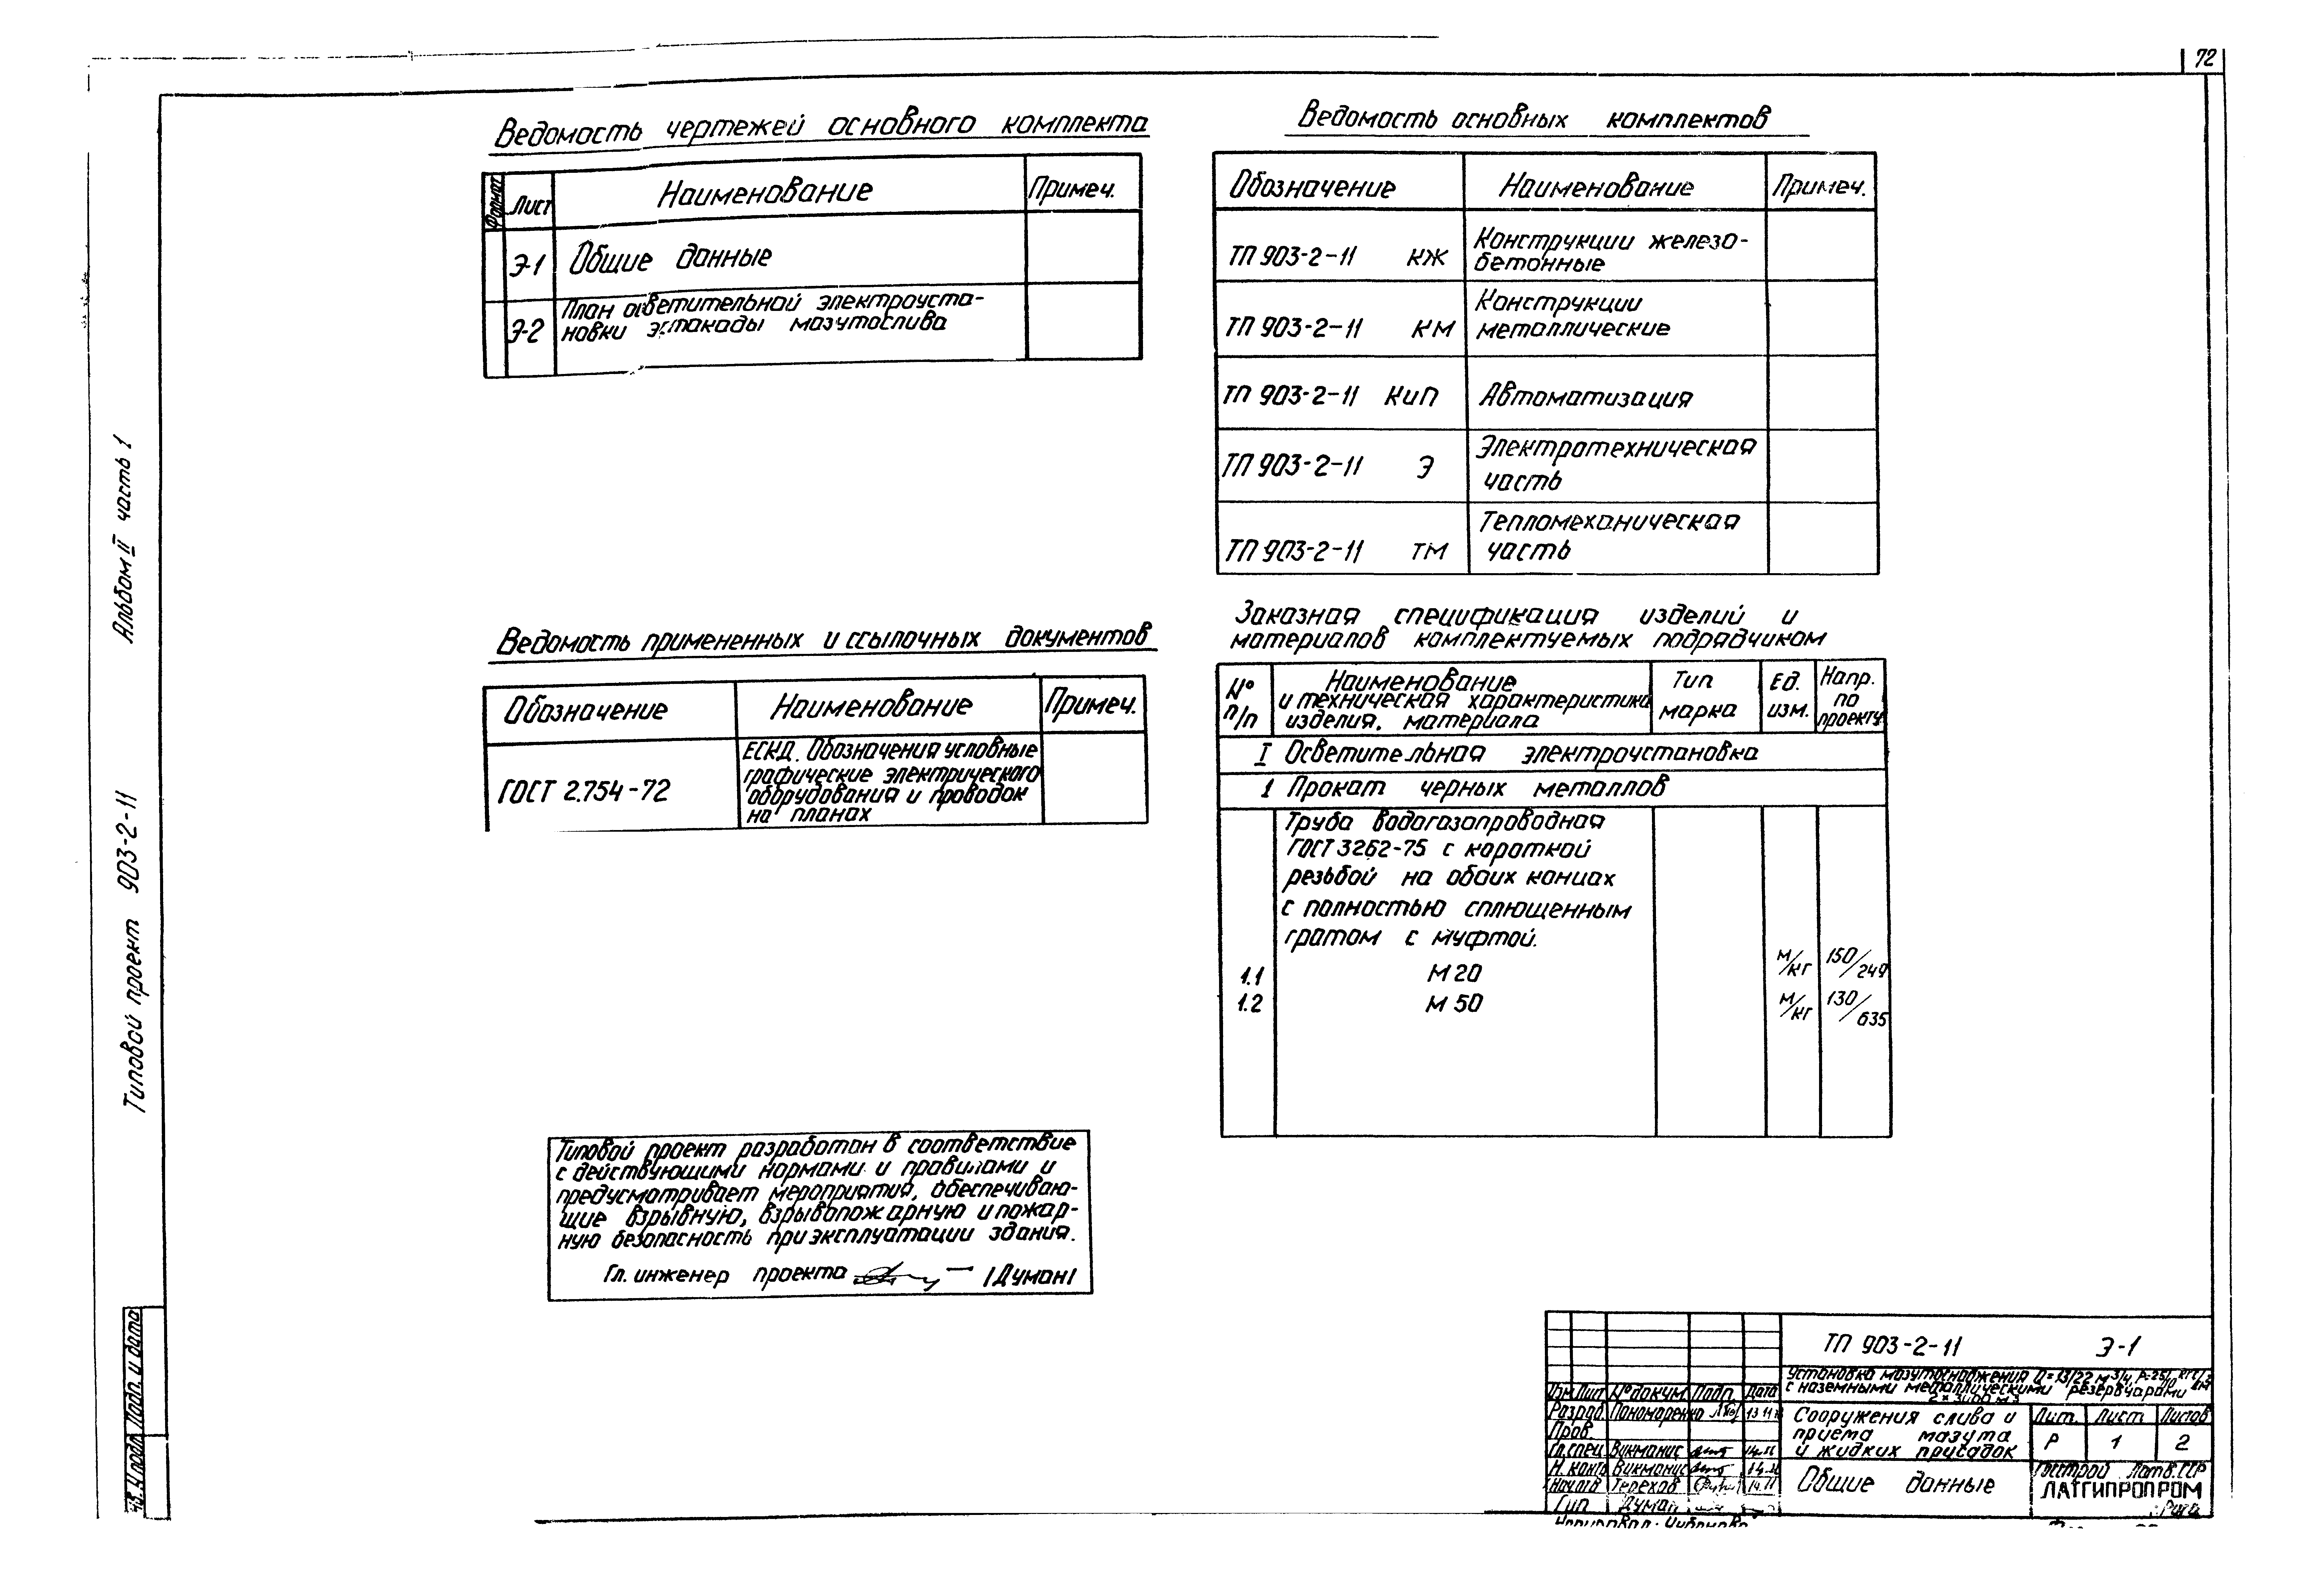 72
Ведомость чертежей основного комплекта
Формат Лист Наименование Примеч.
Э-1 Общие данные
Э-2 План осветительной электроуста-
новки эстакады мазутослива
Ведомость основных комплектов
Обозначение Наименование Примеч.
ТП 903-2-11 КЖ Конструкции железо-
бетонные
ТП 903-2-11 КМ Конструкции
металлические
ТП 903-2-11 КиП Автоматизация
ТП 903-2-11 Э Электротехническая
часть
ТП 903-2-11 ТМ Тепломеханическая
часть
Ведомость примененных и ссылочных документов
Обозначение Наименование Примеч.
ГОСТ 2.754-72 ЕСКД. Обозначения условные
графические электрического
оборудования и проводок
на планах
Заказная спецификация изделий и
материалов комплектуемых подрядчиком
№ п/п
Наименование
и техническая характеристика
изделия, материала
Тип
марка
Ед.
изм.
Напр.
по
проекту
I Осветительная электроустановка
1 Прокат черных металлов
Труба водогазопроводная
ГОСТ 3262-75 с короткой
резьбой на обоих концах
с полностью сплющенным
гратом с муфтой.
1.1 М 20 м/кг 150/249
1.2 М 50 м/кг 130/635
Типовой проект разработан в соответствие
с действующими нормами и правилами и
предусматривает мероприятия, обеспечиваю-
щие взрывную, взрывопожарную и пожар-
ную безопасность при эксплуатации здания.
Гл. инженер проекта /Думан/
Альбом II часть 1
Типовой проект 903-2-11
Подп. и дата
ТП 903-2-11 Э-1
Установка мазутоснабжения Q=13/22 м³/ч, P-25
с наземными металлическими резервуарами
2×3000 м³
Изм. Лист № докум Подп. Дата
Разраб. Пономаренко
Пров.
Гл. спец Викманис
Н. конт Викманис
Нач. отд Терехов
Гип Думан
Сооружения слива и
приема мазута
и жидких присадок
Лит. Лист Листов
Р 1 2
Общие данные
Госстрой Латв.ССР
ЛАТГИПРОПРОМ
г. Рига